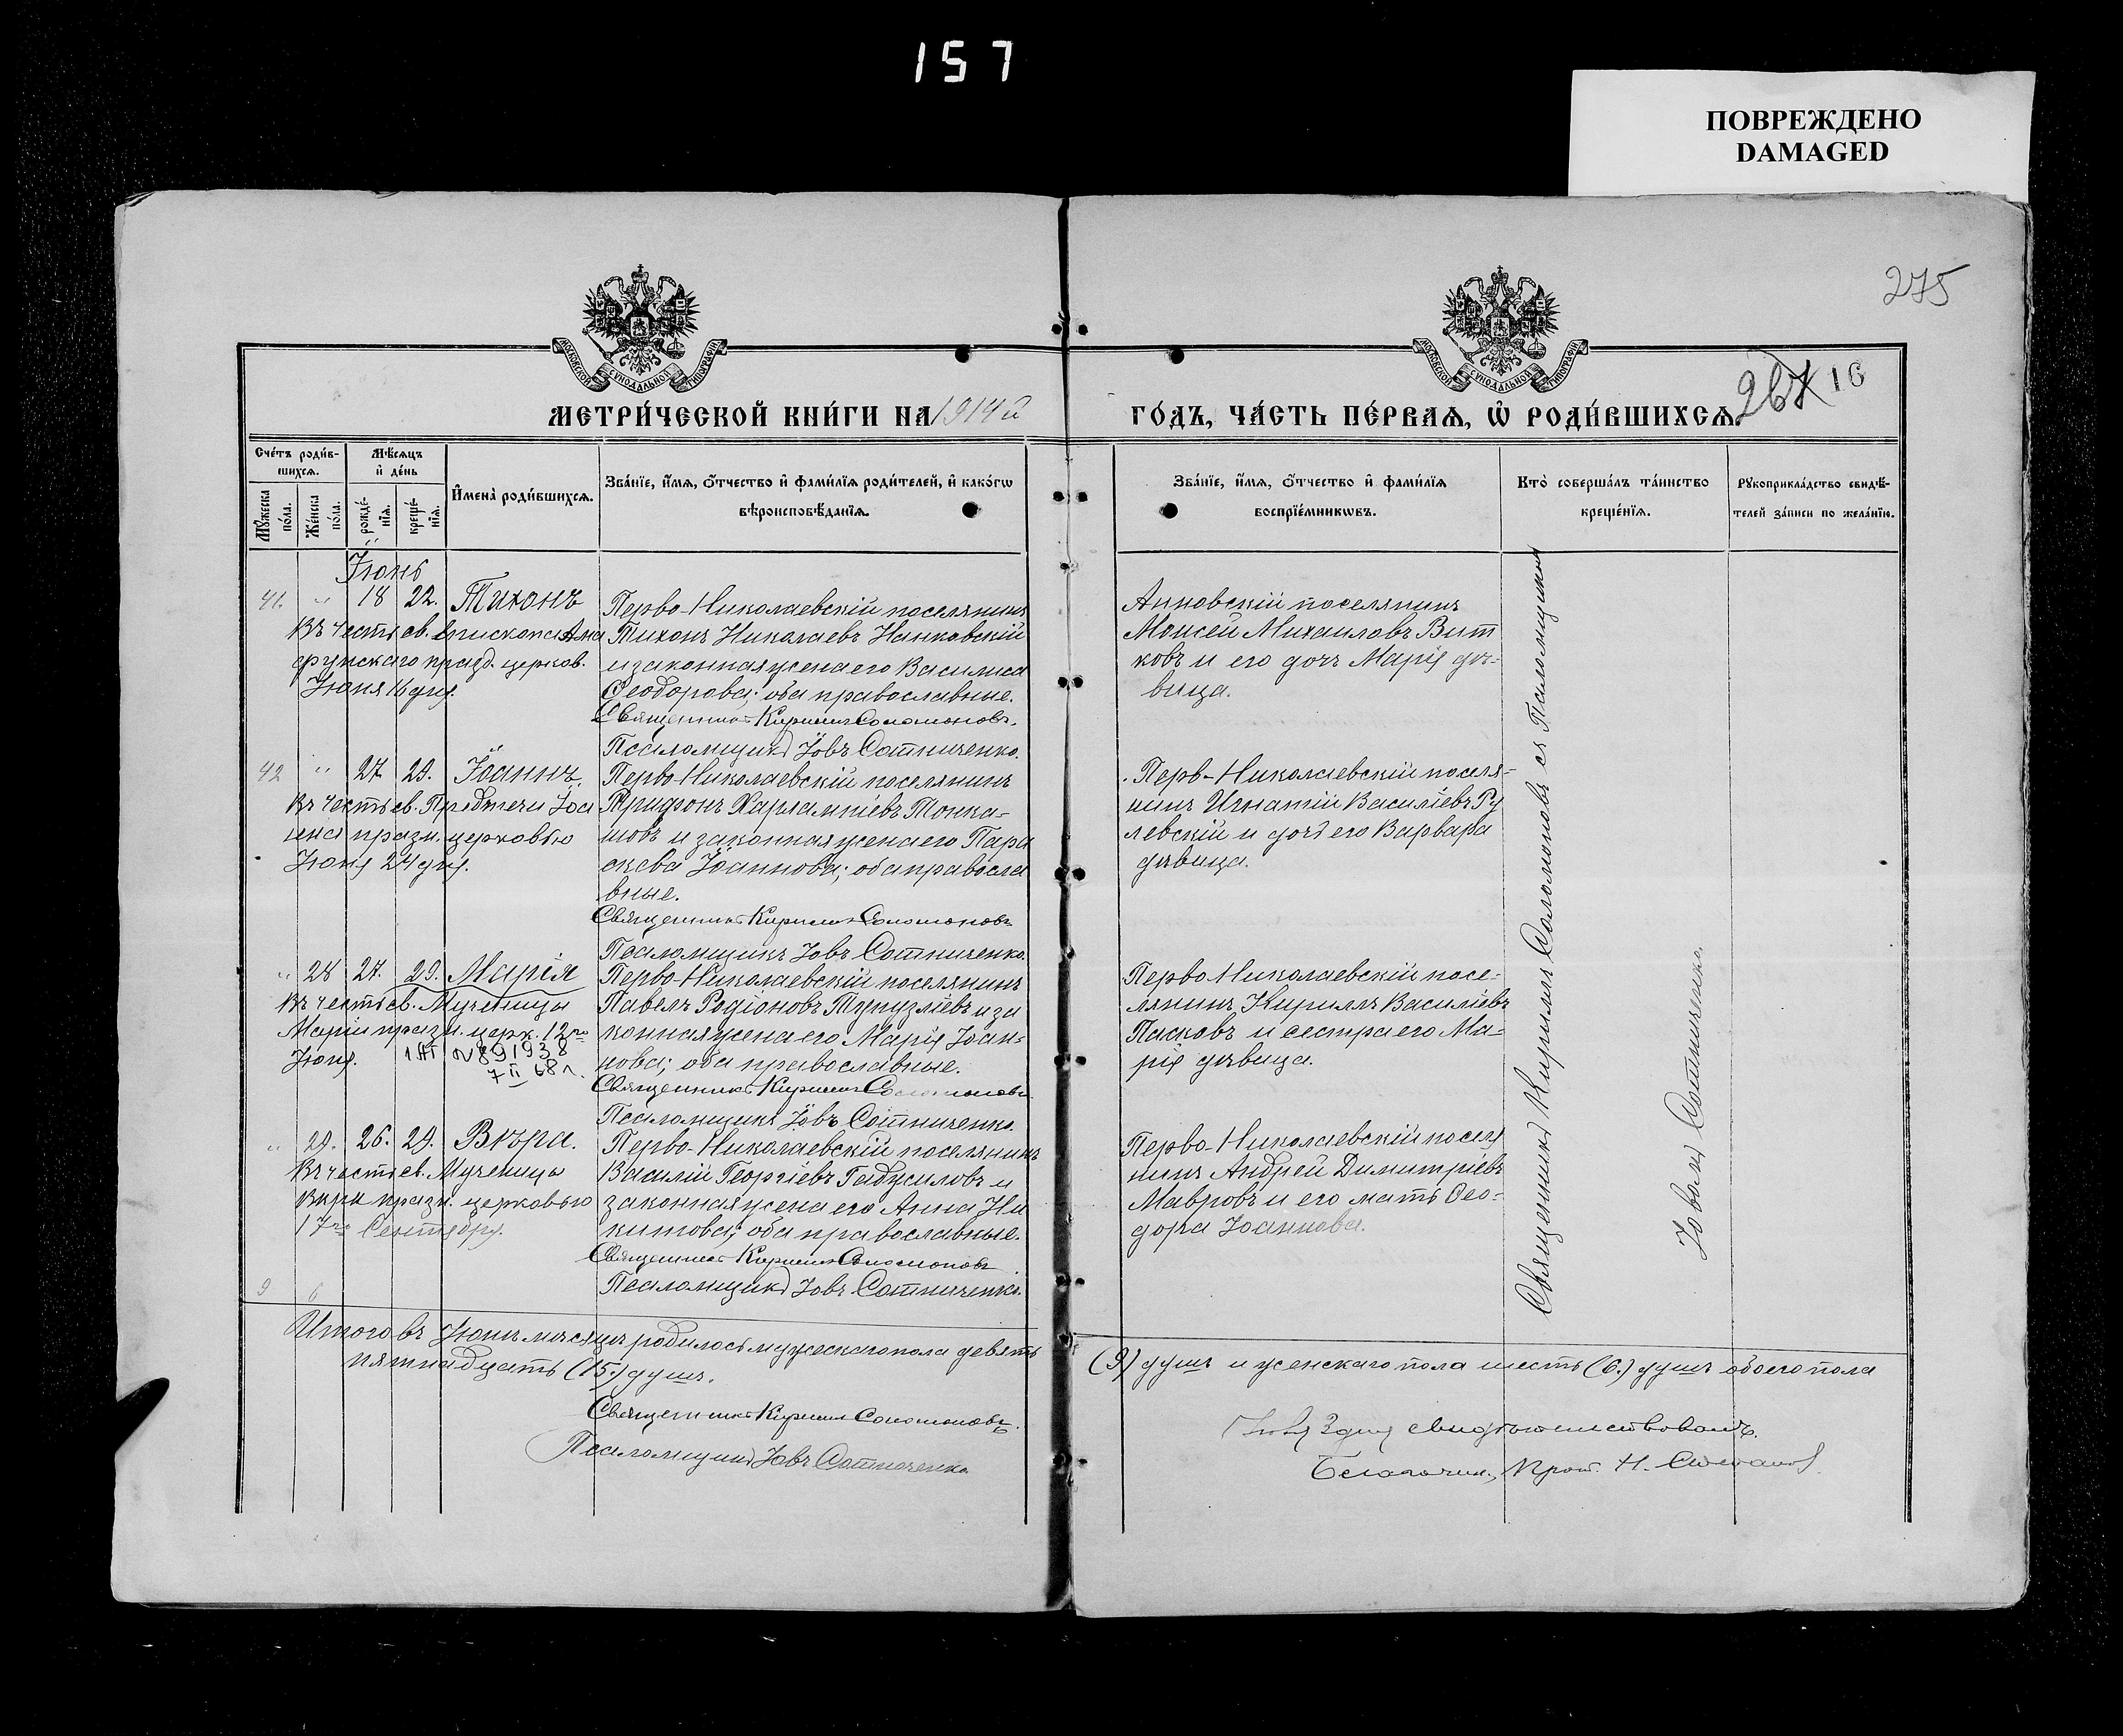 157
ПОВРЕЖДЕНО
DAMAGED
275
МОСКОВСКОЙ СѴНОДАЛЬНОЙ ТИПОГРАФІИ
МОСКОВСКОЙ СѴНОДАЛЬНОЙ ТИПОГРАФІИ
267 16
МЕТРИ́ЧЕСКОЙ КНИ́ГИ НА 1914й
ГО́ДЪ, ЧА́СТЬ ПЕ́РВАѦ, Ѡ҆ РОДИ́ВШИХСѦ.
Сче́тъ роди́в-
шихсѧ.
Мѣ́сѧцъ
и҆ де́нь
Мꙋ́жеска
по́ла.
Же́нска
по́ла.
рожде́-
нїѧ.
креще́-
нїѧ.
И҆мена̀ роди́вшихсѧ.
Зва́нїе, и҆́мѧ, ѻ҆́тчество и҆ фами́лїѧ роди́телей, и҆ како́гѡ
вѣроисповѣ́данїѧ.
Зва́нїе, и҆́мѧ, ѻ҆́тчество и҆ фами́лїѧ
воспрїе́мникѡвъ.
Кто̀ соверша́лъ та́инство
креще́нїѧ.
Рꙋкоприкла́дство свидѣ́-
телей за́писи по жела́нїю.
Іюнь
41. " 18 22. Тихонъ
Въ честь св. Епископа Ама
фунскаго празд. церков.
Іюня 16 дня.
Перво-Николаевскій поселянинъ
Тихонъ Николаевъ Нанковскій
и законная жена его Василиса
Ѳеодорова; оба православные.
Священникъ Кириллъ Соломоновъ.
Псаломщикъ Іовъ Сотниченко.
Анновскій поселянинъ
Моисей Михаиловъ Вит
ковъ и его дочь Марія дѣ-
вица.
42 " 27 29. Іоаннъ.
Въ честь св. Предтечи Іоа
нна празн. церковью
Іюня 24 дня.
Перво-Николаевскій поселянинъ
Трифонъ Харлампіевъ Тонка-
шовъ и законная жена его Пара
скева Іоаннова; оба правосла
вные.
Священникъ Кириллъ Соломоновъ
Псаломщикъ Іовъ Сотниченко.
Перв-Николаевскій поселя-
нинъ Игнатій Василіевъ Гу
левскій и дочь его Варвара
дѣвица.
" 28 27. 29. Марія
Въ честь св. Мученицы
Маріи празн. церк. 12го
Іюня. 1АГ №891938
7 II 68 г.
Перво-Николаевскій поселянинъ
Павелъ Родіоновъ Тупузліевъ и за
конная жена его Марія Іоан-
нова; оба православные.
Священникъ Кириллъ Соломоновъ
Псаломщикъ Іовъ Сотниченко.
Перво-Николаевскій посе-
лянинъ Кириллъ Василіевъ
Пасковъ и сестра его Ма-
рія дѣвица.
" 29. 26. 29. Вѣра.
Въ честь св. Мученицы
Вѣры празн. церковью
17го Сентября.
Перво-Николаевскій поселянинъ
Василій Георгіевъ Гадусиловъ и
законная жена его Анна Ни
китова; оба православные.
Священникъ Кириллъ Соломоновъ
Псаломщикъ Іовъ Сотниченко.
Перво-Николаевскій поселя
нинъ Андрей Димитріевъ
Мавровъ и его мать Ѳео-
дора Іоаннова.
Священникъ Кириллъ Соломоновъ съ Псаломщикомъ
Іовомъ Сотниченко.
9 6
Итого въ Іюнѣ мѣсяцѣ родилось мужескаго пола девять
(9) душъ и женскаго пола шесть (6.) душъ обоего пола
пятнадцать (15.) душъ.
Священникъ Кириллъ Соломоновъ.
Псаломщикъ Іовъ Сотниченко
Іюля 3 дня свидѣтельствовалъ.
Благочин., Прот. Н. Стефановъ